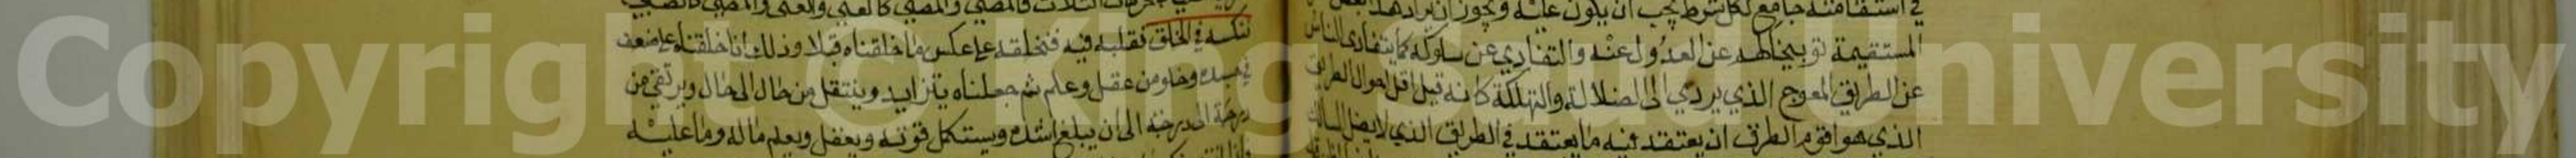 في استقامته جامع لكل شرط يجب ان يكون عليه ويجوز ان يراد هذا بعض
المستقيمة توبيخا لهم عن العدول عنه والتفادي عن سلوكه كما يتفادى الناس
عن الطريق المعوج الذي يردي الى الضلالة والتهلكة كانه قيل اقل احوال الطريق
الذي هو اقوم الطرق ان يعتقد فيه ما يعتقد في الطريق الذي لا يضل السالك
ننكسه في الخلق نقلبه فيه فنخلقه على عكس ما خلقناه قبلا وذلك انا خلقناه على ضعف
في جسده وخلو من عقل وعلم ثم جعلناه يتزايد وينتقل من حال الى حال ويرتقي من
درجة الى درجة الى ان يبلغ اشده ويستكمل قوته ويعقل ويعلم ماله وما عليه
Copyright © King Saud University